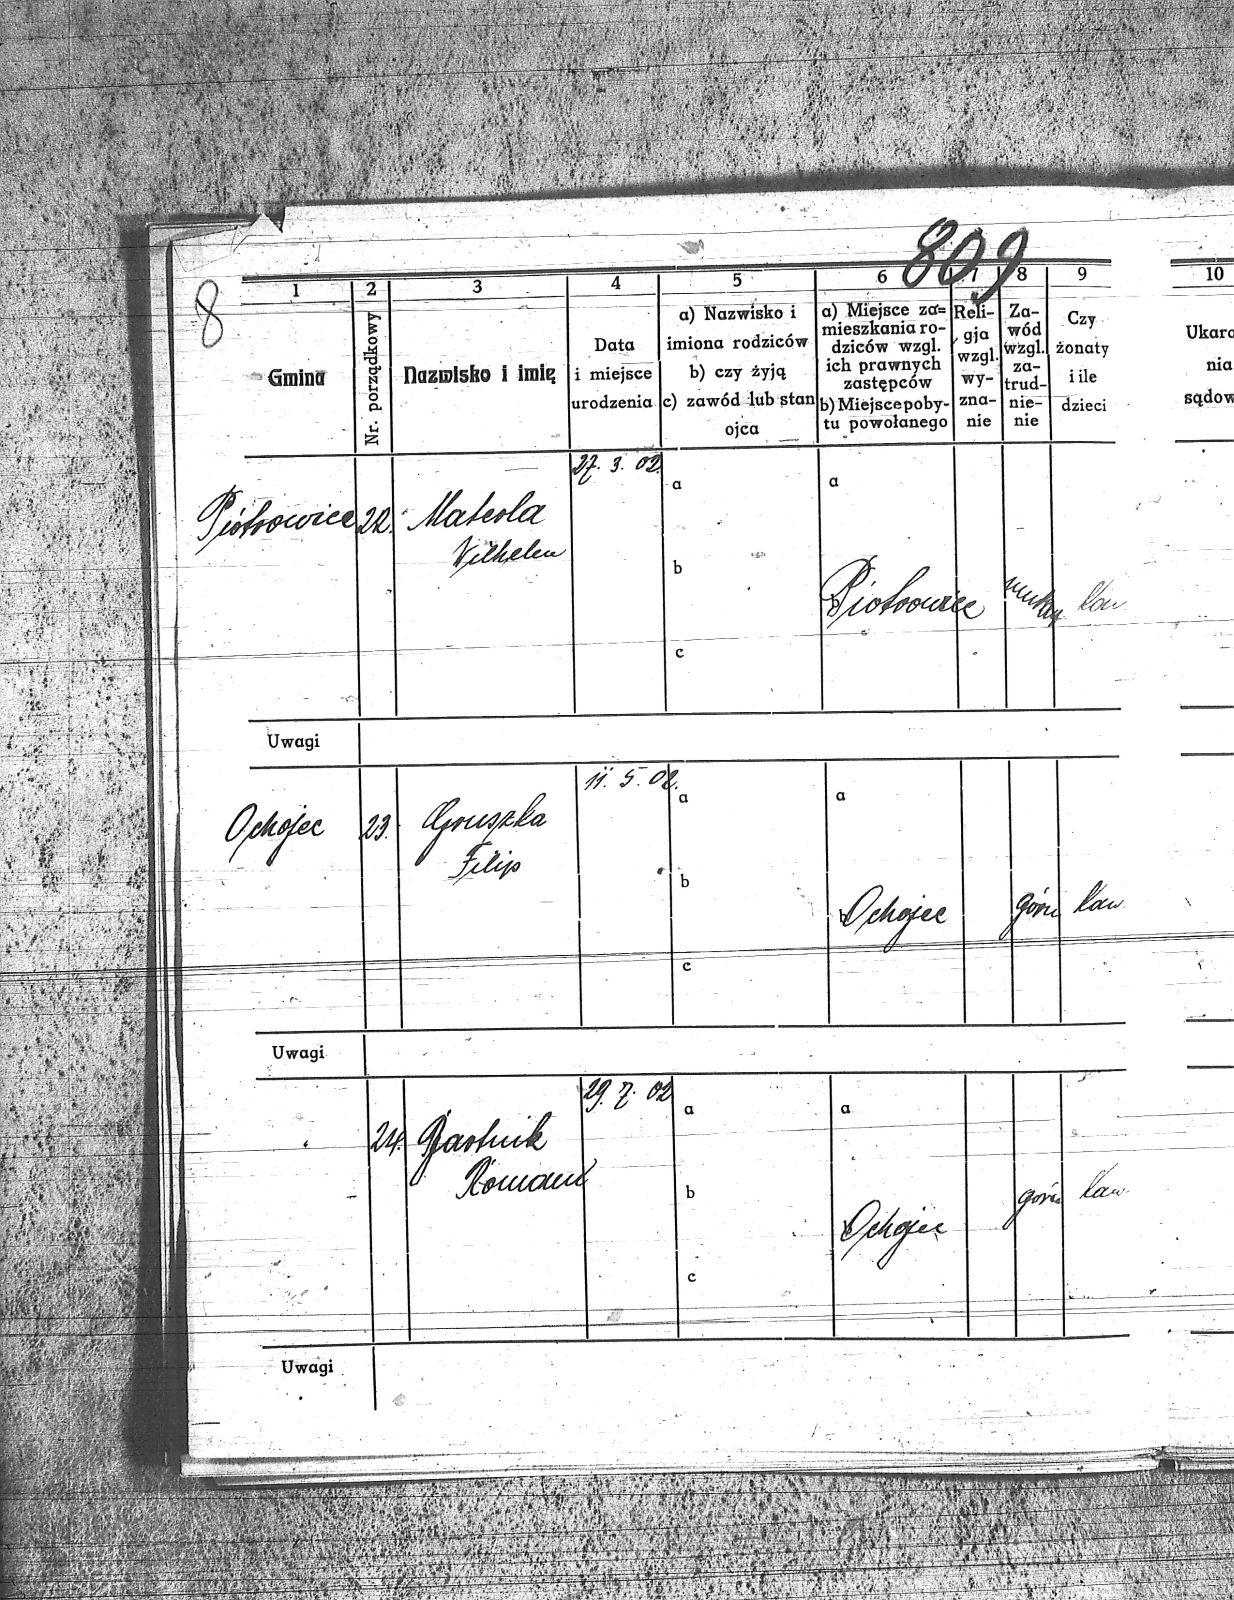 809
8
1 2 3 4 5 6 7 8 9 10
Gmina
Nr. porządkowy
Nazwisko i imię
Data
i miejsce
urodzenia
a) Nazwisko i
imiona rodziców
b) czy żyją
c) zawód lub stan
ojca
a) Miejsce za=
mieszkania ro-
dziców wzgl.
ich prawnych
zastępców
b) Miejsce poby-
tu powołanego
Reli-
gja
wzgl.
wy-
zna-
nie
Za-
wód
wzgl.
za-
trud-
nie-
nie
Czy
żonaty
i ile
dzieci
Ukara
nia
sądow
27. 3. 02.
a a
Piotrowice 22. Materla
Vilhelm
b
b Piotrowice kaw
c
Uwagi
11. 5. 02.
a a
Ochojec 23. Gruszka
Filip
b
b Ochojec górn kaw.
c
Uwagi
29. 7. 02
a a
24.
Roman
b górn kaw.
b Ochojec
c
Uwagi